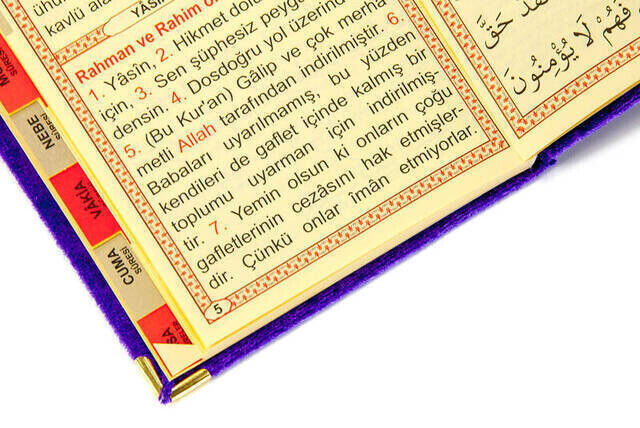 kavlü
YÂSİN
Rahman ve Rahim
1. Yâsîn, 2. Hikmet
için, 3. Sen şüphesiz
densin. 4. Dosdoğru yol üzerinde
5. (Bu Kur'an) Gâlip ve çok merha
metli Allah tarafından indirilmiştir. 6.
Babaları uyarılmamış, bu yüzden
kendileri de gaflet içinde kalmış bir
toplumu uyarman için indirilmiş-
tir. 7. Yemin olsun ki onların çoğu
gafletlerinin cezâsını hak etmişler-
dir. Çünkü onlar îmân etmiyorlar.
5
حَقَّ
فَهُمْ لَا يُؤْمِنُونَ
SÛRESİ
NEBE
SÛRESİ
VÂKIA
CUMA
SÛRESİ